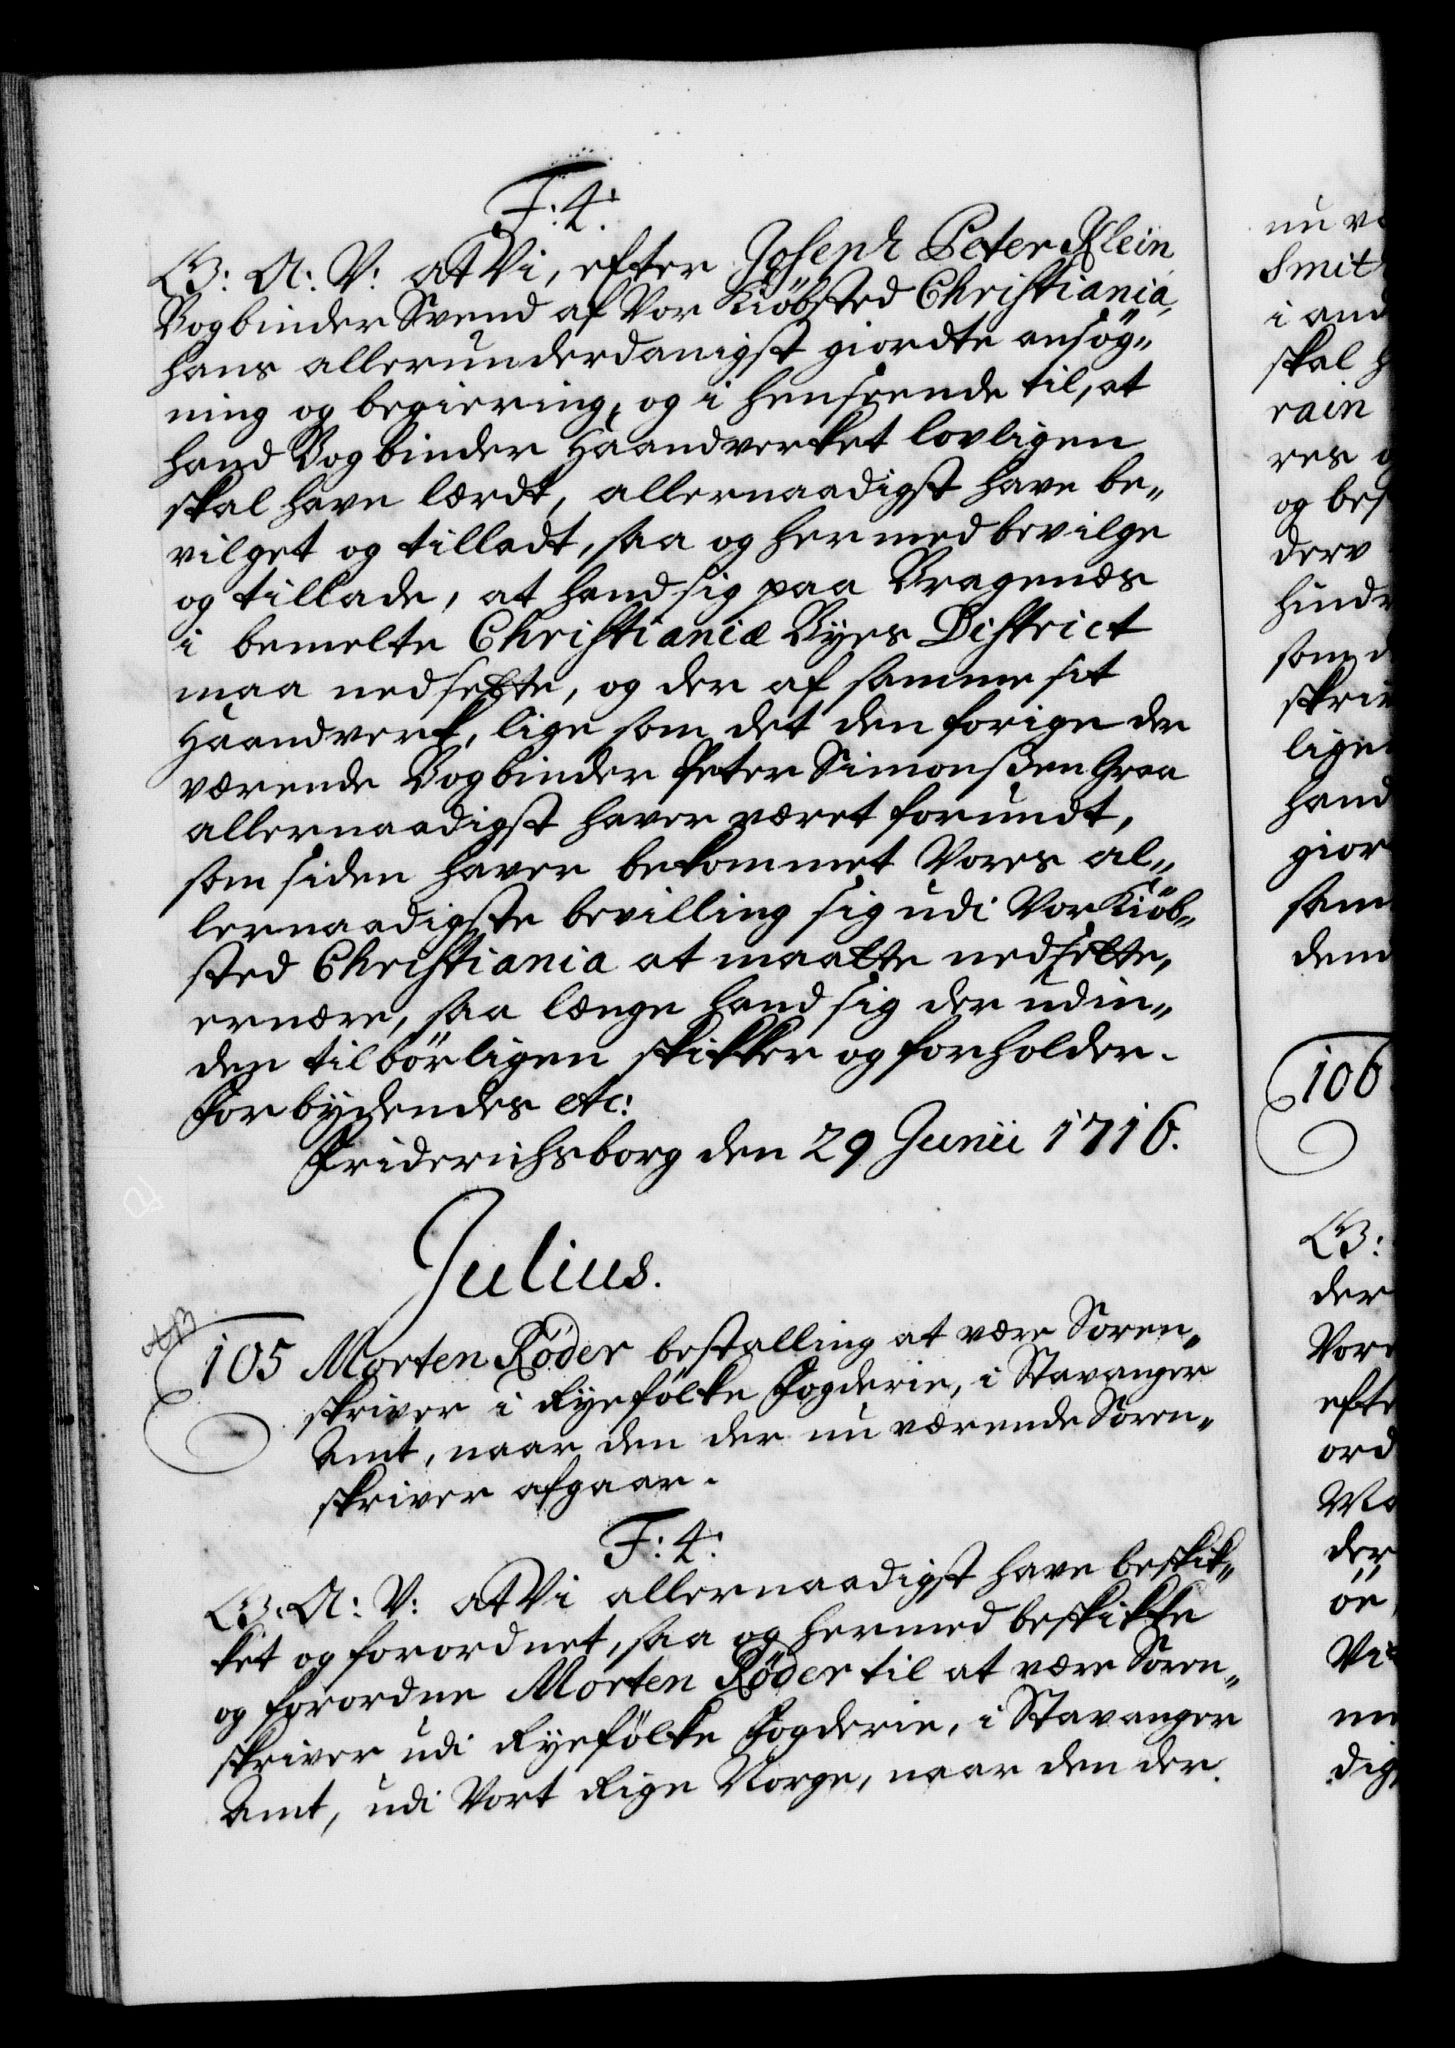 F: 4:
G: A: V: At Vi, efter Joseph Peter Klein
Bogbinder Svend af Vor Kiöbsted Christiania,
hans allerunderdanigst giordte ansög„
ning og begiering, og i henseende til, at
hand Bogbinder Haandverket lovligen
skal have lærdt, allernaadigst have be„
vilget og tilladt, saa og hermed bevilge
og tillade, at hand sig paa Bragenæs
i bemelte Christianiæ Byes District
maa nedsette, og der af samme sit
Haandverk, lige som det den forige der
værende Bogbinder Peter Simonßen Graa
allernaadigst haver været forundt,
som siden haver bekommet Vores al„
lernaadigste bevilling sig udi Vor Kiöb„
sted Christiania at maatte nedsette,
ernære, saa længe hand sig der udin„
den tilbörligen skikker og forholder.
Forbydendes etc:
Friderichsborg den 29 Junii 1716.
Julius.
105 Morten Röder bestalling at være Soren„
skriver i Ryefölke Fogderie, i Stavanger
Amt, naar den der nu værende Soren„
skriver afgaar.
F: 4:
G: A: V: At Vi allernaadigst have beskik„
ket og forordnet, saa og hermed beskikke
og forordne Morten Röder til at være Soren„
skriver udi Ryefölke Fogderie, i Stavanger
Amt, udi Vort Rige Norge, naar den der
nu
Smit
i and
skal
rain
res
og bes
derv
hindr
som d
skriv
lige
hand
gior
sam
dem
106
G:
der
Vore
efte
ord
Mo
der
öe
Vi
dig